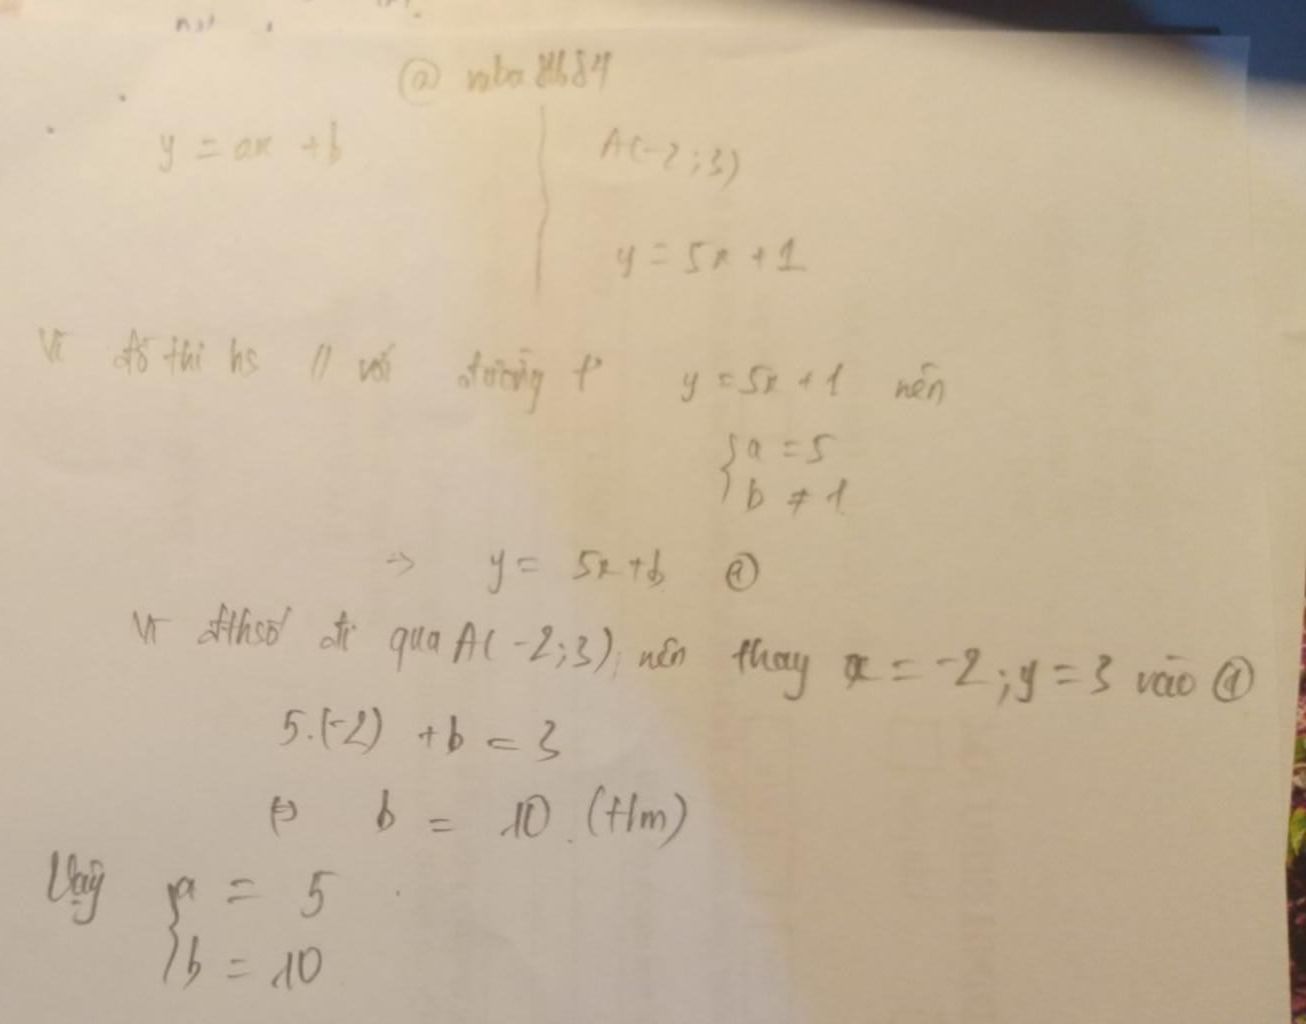 @ nbo8h684
y = ax + b
A(-2;3)
y = 5x + 1
Vì đồ thị hs // với đường t² y = 5x + 1 nên
{ a = 5
b ≠ 1
→ y = 5x + b @
Vì đthsố đi qua A(-2;3), nên thay x = -2; y = 3 vào @
5.(-2) + b = 3
⇔ b = 10 (t/m)
Vậy { a = 5
b = 10